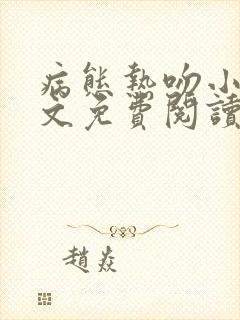 病態熱吻小
文免費閱讀
趙焱